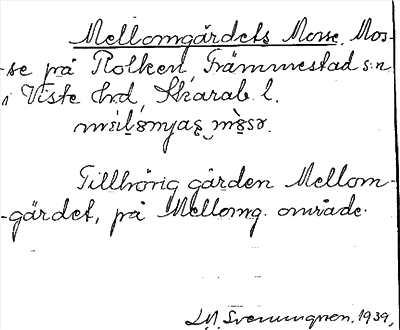 Mellomgärdets Mosse, Mos-
-se på Rolken, Främmestad s:n
i Viste hrd, Skarab. l.

Tillhörig gården Mellom-
-gärdet, på Mellomg. område.
1939.